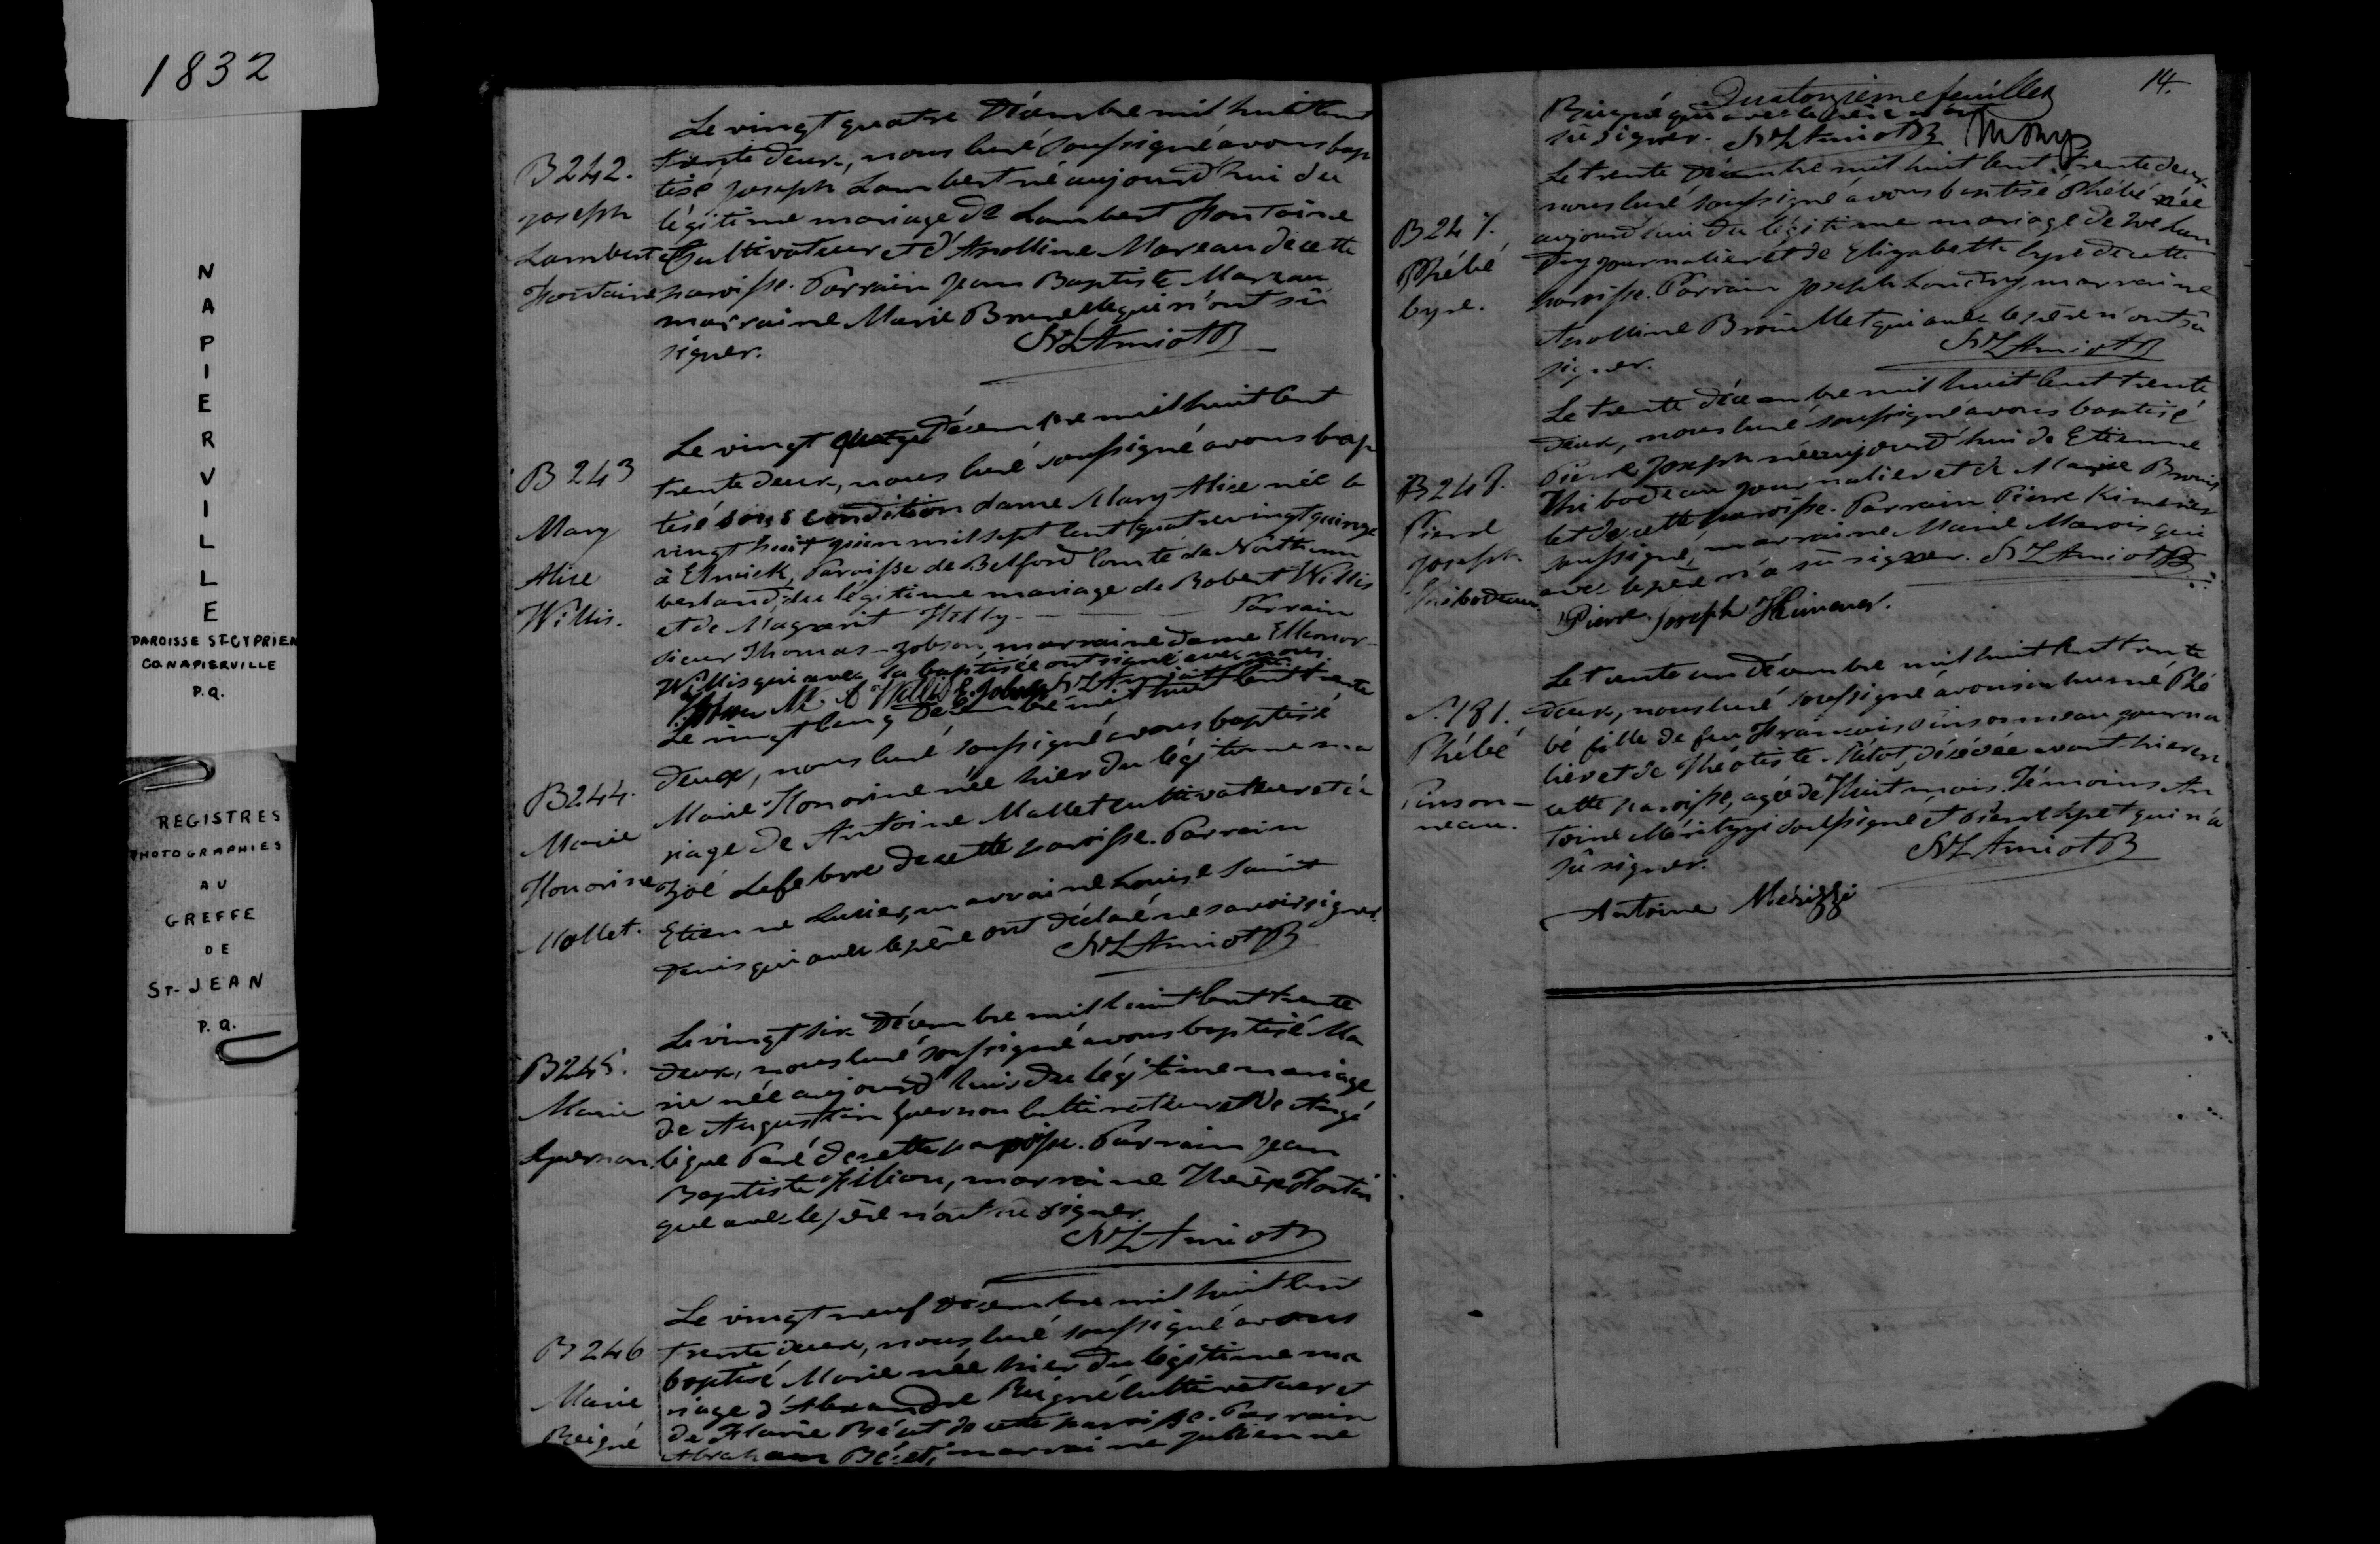 1832
NAPIERVILLE
PAROISSE ST-CYPRIEN
CO. NAPIERVILLE
P.Q.
REGISTRES
PHOTOGRAPHIES
AU
GREFFE
DE
ST-JEAN
P.Q.
B 242.
Joseph
Lambert
Fontaine
Le vingt quatre Décembre mil huit cent
trente deux, nous curé soussigné avons bap
tisé Joseph Lambert né aujourd'hui du
légitime mariage de Lambert Fontaine
Cultivateur et d'Apolline Moreau de cette
paroisse. Parrain Jean Baptiste Moreau
marraine Marie Brunelle qui n'ont sû
signer.
NLAmiot
B 243
Mary
Alice
Willis.
Le vingt Décembre mil huit cent
trente deux, nous curé soussigné avons bap
tisé sous condition dame Mary Alice née le
vingt huit juin mil sept cent quatrevingt quinze
à Elnwick, Paroisse de Belford Comté de Northum
berland, du légitime mariage de Robert Willis
et de Magrant Helly Parrain
sieur Thomas Jobson, marraine dame Ellenor
Willis qui avec la baptisée ont signé avec nous.
M A Willis E. Jobson NLAmiot
B 244.
Marie
Honorine
Mallet.
Le vingt cinq Décembre mil huit cent trente
deux, nous curé soussigné avons baptisé
Marie Honorine née hier du légitime ma
riage de Antoine Mallet cultivateur et de
Zoé Lefebvre de cette paroisse. Parrain
Etienne Lucier, marraine Louise Saint
Denis qui avec le père ont déclaré ne savoir signer.
NLAmiot
B 245.
Marie
Guernon.
Le vingt six Décembre mil huit cent trente
deux, nous curé soussigné avons baptisé Ma
rie née aujourd'hui du légitime mariage
de Augustin Guernon cultivateur et de Angé
lique Paré de cette paroisse. Parrain Jean
Baptiste Filion, marraine Thérèse Fortin
qui avec le père n'ont sû signer.
NLAmiot
B 246
Marie
Beigné
Le vingt neuf Décembre mil huit cent
trente deux, nous curé soussigné avons
baptisé Marie née hier du légitime ma
riage d'Alexandre Beigné cultivateur et
de Flavie de cette paroisse. Parrain
Abraham marraine Julienne
Quatorzieme feuillet
14.
Beigné qui avec le père n'ont
sû signer. NLAmiot
B 247.
Phébé
Cyre.
Le trente Décembre mil huit cent trente deux
nous curé soussigné avons baptisé Phébé née
aujourd'hui du légitime mariage de Lan
dry journalier et de Elizabette Cyre de cette
paroisse. Parrain Joseph Landry, marraine
Apolline Brouillet qui avec le père n'ont sû
signer.
NLAmiot
B 248.
Pierre
Joseph
Thibodeau.
Le trente décembre mil huit cent trente
deux, nous curé soussigné avons baptisé
Pierre Joseph né aujourd'hui de Etienne
Thibodeau journalier et de Marie Brouil
let de cette paroisse. Parrain Pierre
soussigné, marraine Marie Marois qui
avec le père n'a sû signer. NLAmiot
Pierre Joseph
S. 181.
Phébé
Pinson-
neau.
Le trente un décembre mil huit cent trente
deux, nous curé soussigné avons inhumé Phé
bé fille de feu François Pinsonneau journa
lier et de Théotiste décédée avant hier en
cette paroisse, agée de huit mois. Témoins An
toine Mérizzi soussigné et Pierre qui n'a
sû signer.
NLAmiot
Antoine Mérizzi